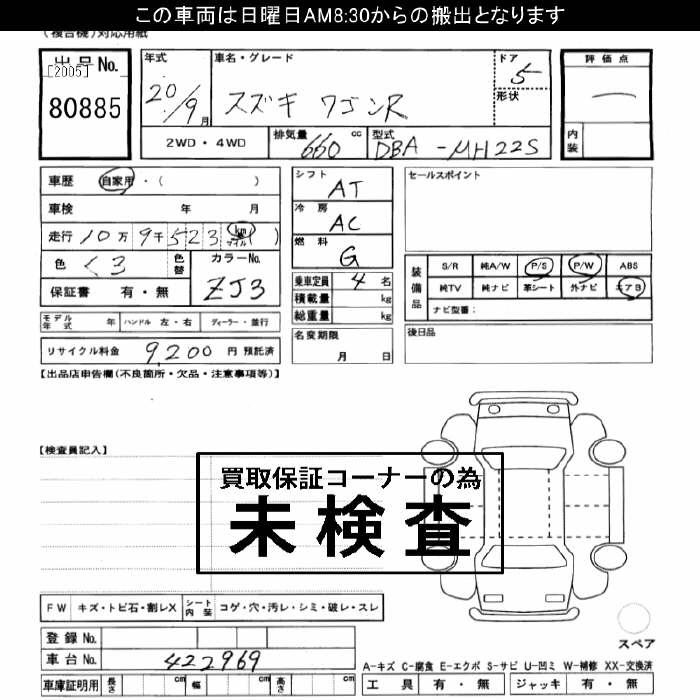 この車両は日曜日AM8:30からの搬出となります
(複合機)対応用紙
出品No. [2005] 80885
年式 20/9月
車名・グレード スズキ ワゴンR
ドア 5
形状
評価点 —
内装
2WD・4WD
排気量 660 cc
型式 DBA-MH22S
車歴 自家用・( )
車検 年 月
走行 10万9千523 km マイル ( )
色 くろ 色替 カラーNo. ZJ3
保証書 有・無
シフト AT
冷房 AC
燃料 G
乗車定員 4名
積載量 kg
総重量 kg
セールスポイント
装備品 S/R 純A/W P/S P/W ABS
純TV 純ナビ 革シート 外ナビ エアB
ナビ型番:
モデル年式 年 ハンドル 左・右 ディーラー・並行
リサイクル料金 9,200 円 預託済
名変期限 月 日
後日品
【出品店申告欄(不良箇所・欠品・注意事項等)】
【検査員記入】
買取保証コーナーの為
未検査
FW キズ・トビ石・割レX シート内装 コゲ・穴・汚レ・シミ・破レ・スレ
登録No.
車台No. 422969
車庫証明用 長さ cm 幅 cm 高さ cm
スペア
A-キズ C-腐食 E-エクボ S-サビ U-凹ミ W-補修 XX-交換済
工具 有・無 ジャッキ 有・無